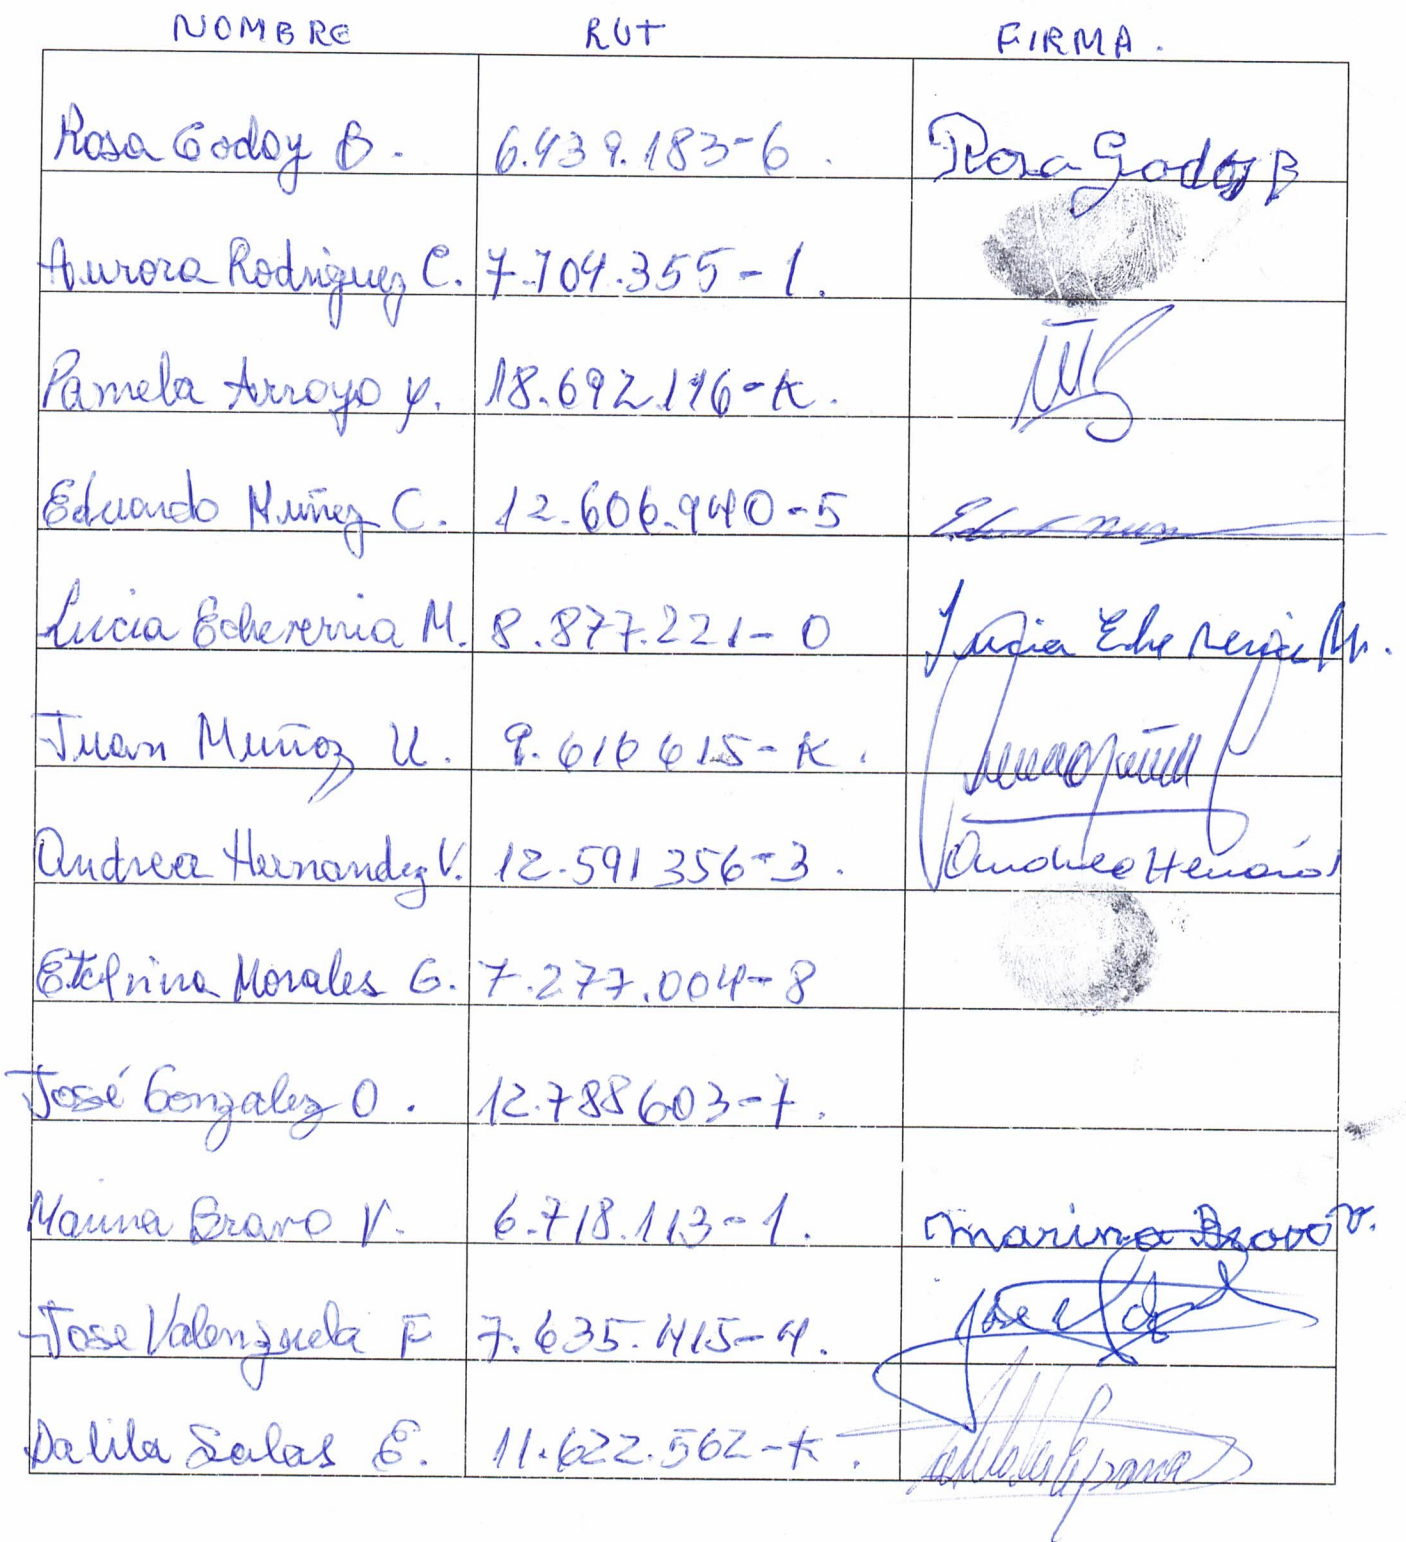 NOMBRE RUT FIRMA.
Rosa Godoy B. 6.439.183-6. Rosa Godoy B
Aurora Rodriguez C. 7.704.355-1.
Pamela Arroyo Y. 18.692.116-K.
Eduardo Muñez C. 12.606.940-5
Lucia Echeverria M. 8.877.221-0 Lucia Echeverria M.
Juan Muñoz U. 9.616615-K.
Andrea Hernandez V. 12.591356-3. Andrea
Etelvina Morales G. 7.277.004-8
José Gonzalez O. 12.788603-7.
Marina Bravo V. 6.718.113-1. Marina Bravo V.
Jose Valenzuela F 7.635.415-4. Jose
Dalila Salas E. 11.622.562-K.